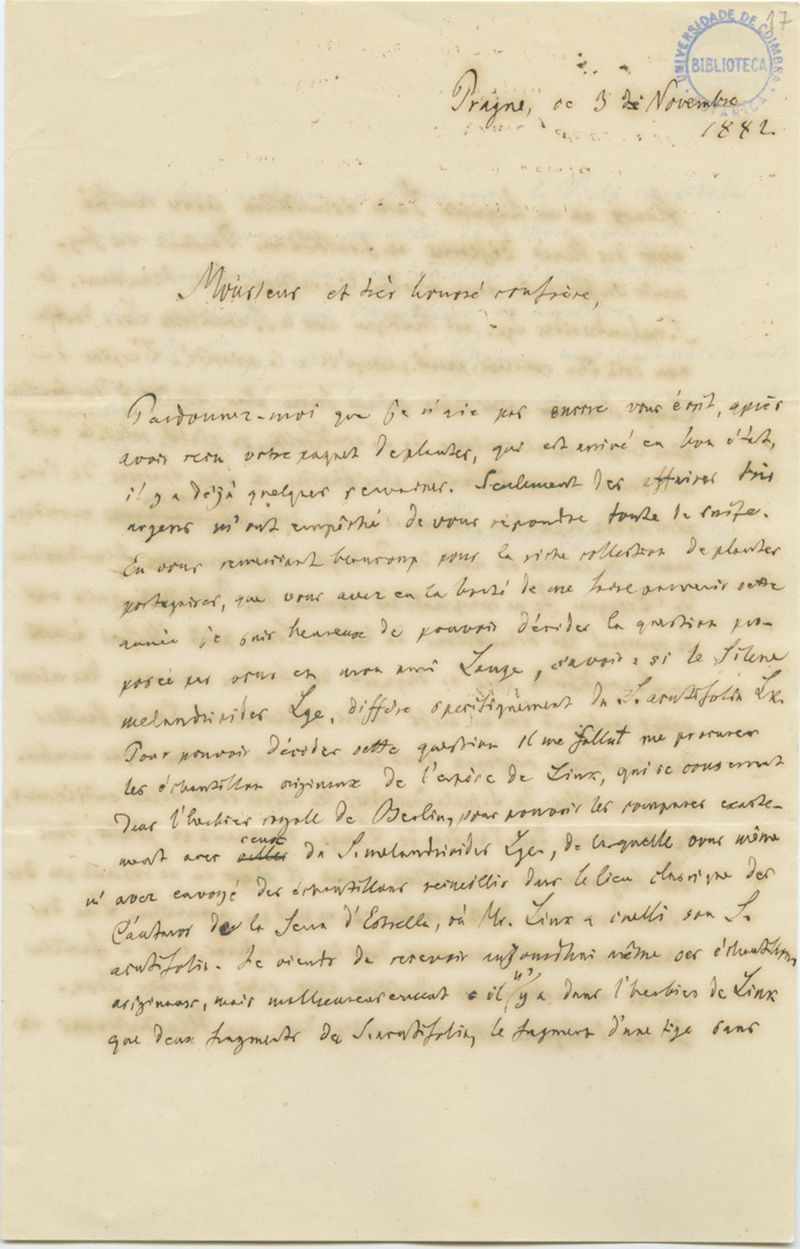 17
UNIVERSIDADE DE COIMBRA
BIBLIOTECA
Prague, ce 3 de Novembre
1882.
Monsieur et très honoré confrère,
Pardonnez-moi que je n'aie pas encore vous écrit, après
avoir reçu votre paquet de plantes, qui est arrivé en bon état,
il y a déjà quelques semaines. Seulement des affaires très
urgens m'ont empêché de vous répondre toute de suite.
En vous remerciant beaucoup pour la riche collection de plantes
portugaises, que vous avez eu la bonté de me faire parvenir cette
année je suis heureux de pouvoir décider la question pro-
posée par vous et mon ami Lange, savoir: si le Silene
melandrioides Lge. diffère spécifiquement du S. acutifolia Lk.
Pour pouvoir décider cette question il me fallut me procurer
les échantillon originaux de l'espèce de Link, qui se conservent
dans l'herbier royall de Berlin, pour pouvoir les comparer exacte-
ment avec celles ceux du S. melandrioides Lge., de laquelle vous même
m'avez envoyé des échantillons recueillis dans le lieu classique des
Cántaros de la Serra d'Estrella, où Mr. Link a cueilli son S.
acutifolia. Je viens de recevoir aujourdhui même ces échantillons
originaux, mais malheureusement il n'y a dans l'herbier de Link
que deux fragments de S. acutifolia, le fragment d'une tige sans